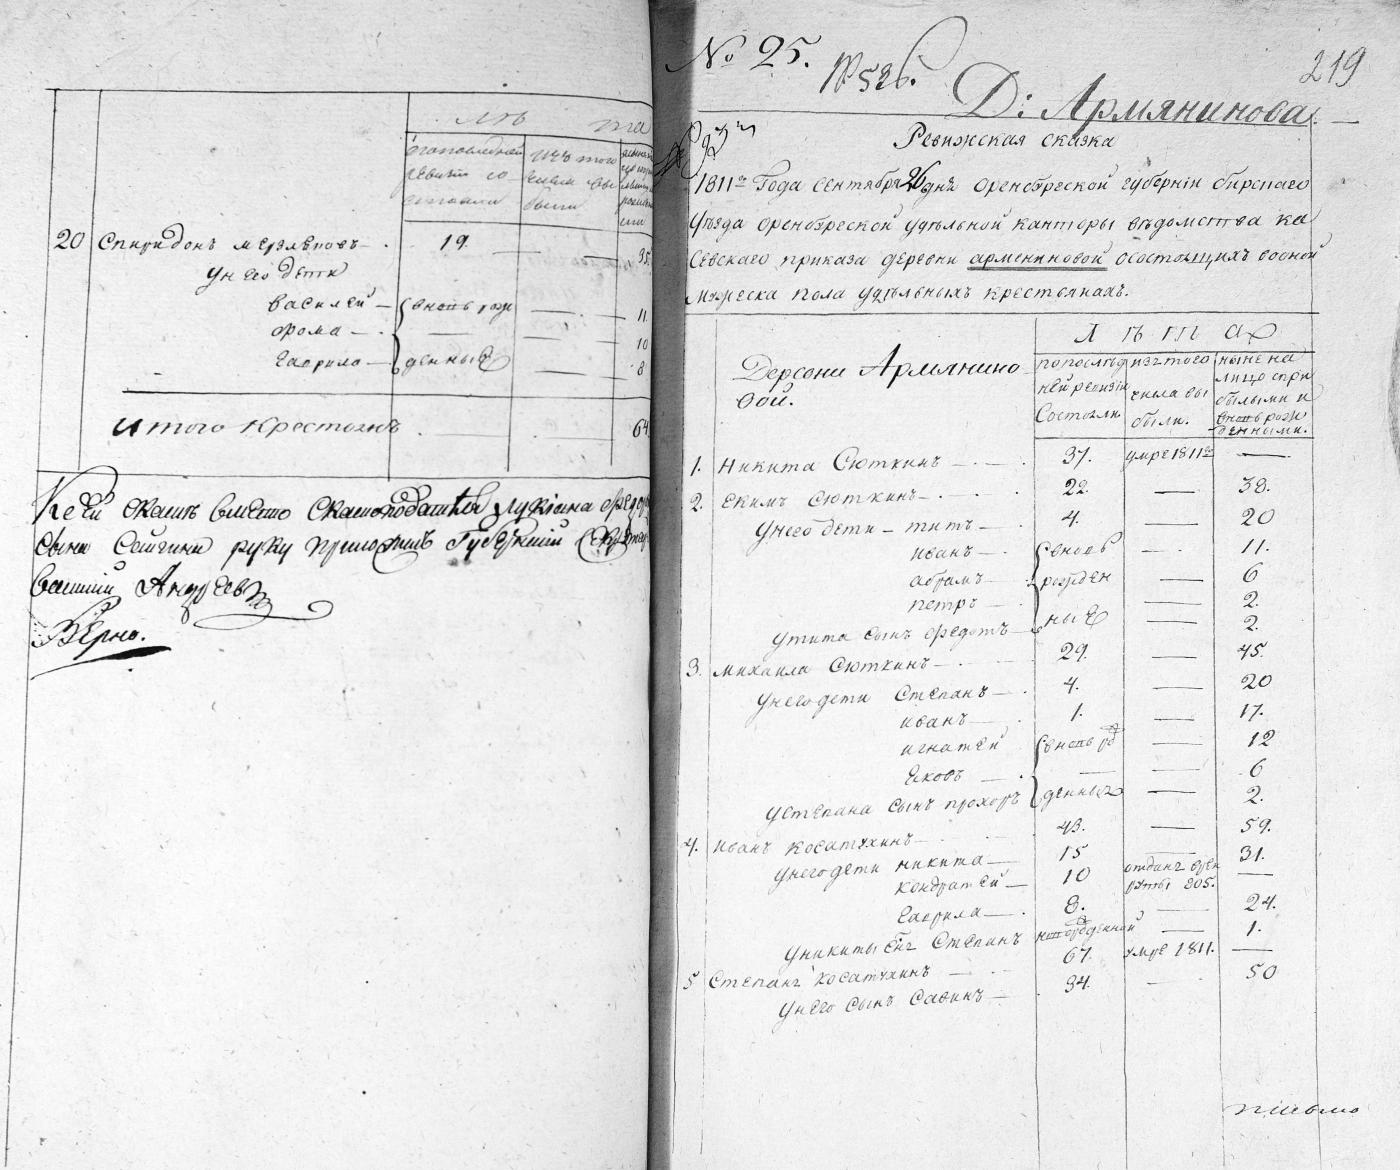 Лѣ та
о последней ревизии со стояли
изъ того числа вы были
20 Спиридонъ Мерзляковъ 19. 35.
у него дети
Василей вновь рож 11.
Фома 10
Гаврило денныя 8
Итого крестьянъ 64
К сей скаске вместо скаскоподателя Лукіана Федор
сына руку приложилъ Губернскій Секретарь
Андреевъ
Вѣрно.
№ 25.
№ 526.
219
Д: Армянинова
Ревижская сказка
1811го Года Сентября 26 дня Оренбурской губерніи бирскаго
Уѣзда Оренбурской удѣльной канторы вѣдомства ка
севскаго приказа деревни армениновой о состоящихъ во оной
мужеска пола удѣльныхъ крестьянахъ.
Л ѣ т ах
Деревни Армянино
вой.
по послѣд ней ревизіи Состояли
изъ того числа вы были.
ныне на лицо с при былыми и вновь рож денными.
1. Никита Сюткинъ 37. умре 1811го
2. Екимъ Сюткинъ 22. 38.
у него дети титъ 4. 20
иванъ вновь 11.
абрамъ рожден 6
петръ 2.
у тита сынъ федотъ ныЕ 2.
3. Михаила Сюткинъ 29. 45.
у него дети Степанъ 4. 20
иванъ 1. 17.
игнатей вновь ро 12
Яковъ 6
у степана сынъ прохоръ денныя 2.
4. Иванъ Косатухинъ 43. 59.
у него дети никита 15 31.
кондратей 10 отданъ врек руты 805.
гаврила 8. 24.
у никиты снъ Степанъ новорожденной 1.
5 Степанъ косатухинъ 67. умре 1811.
у него сынъ Савинъ 34. 50